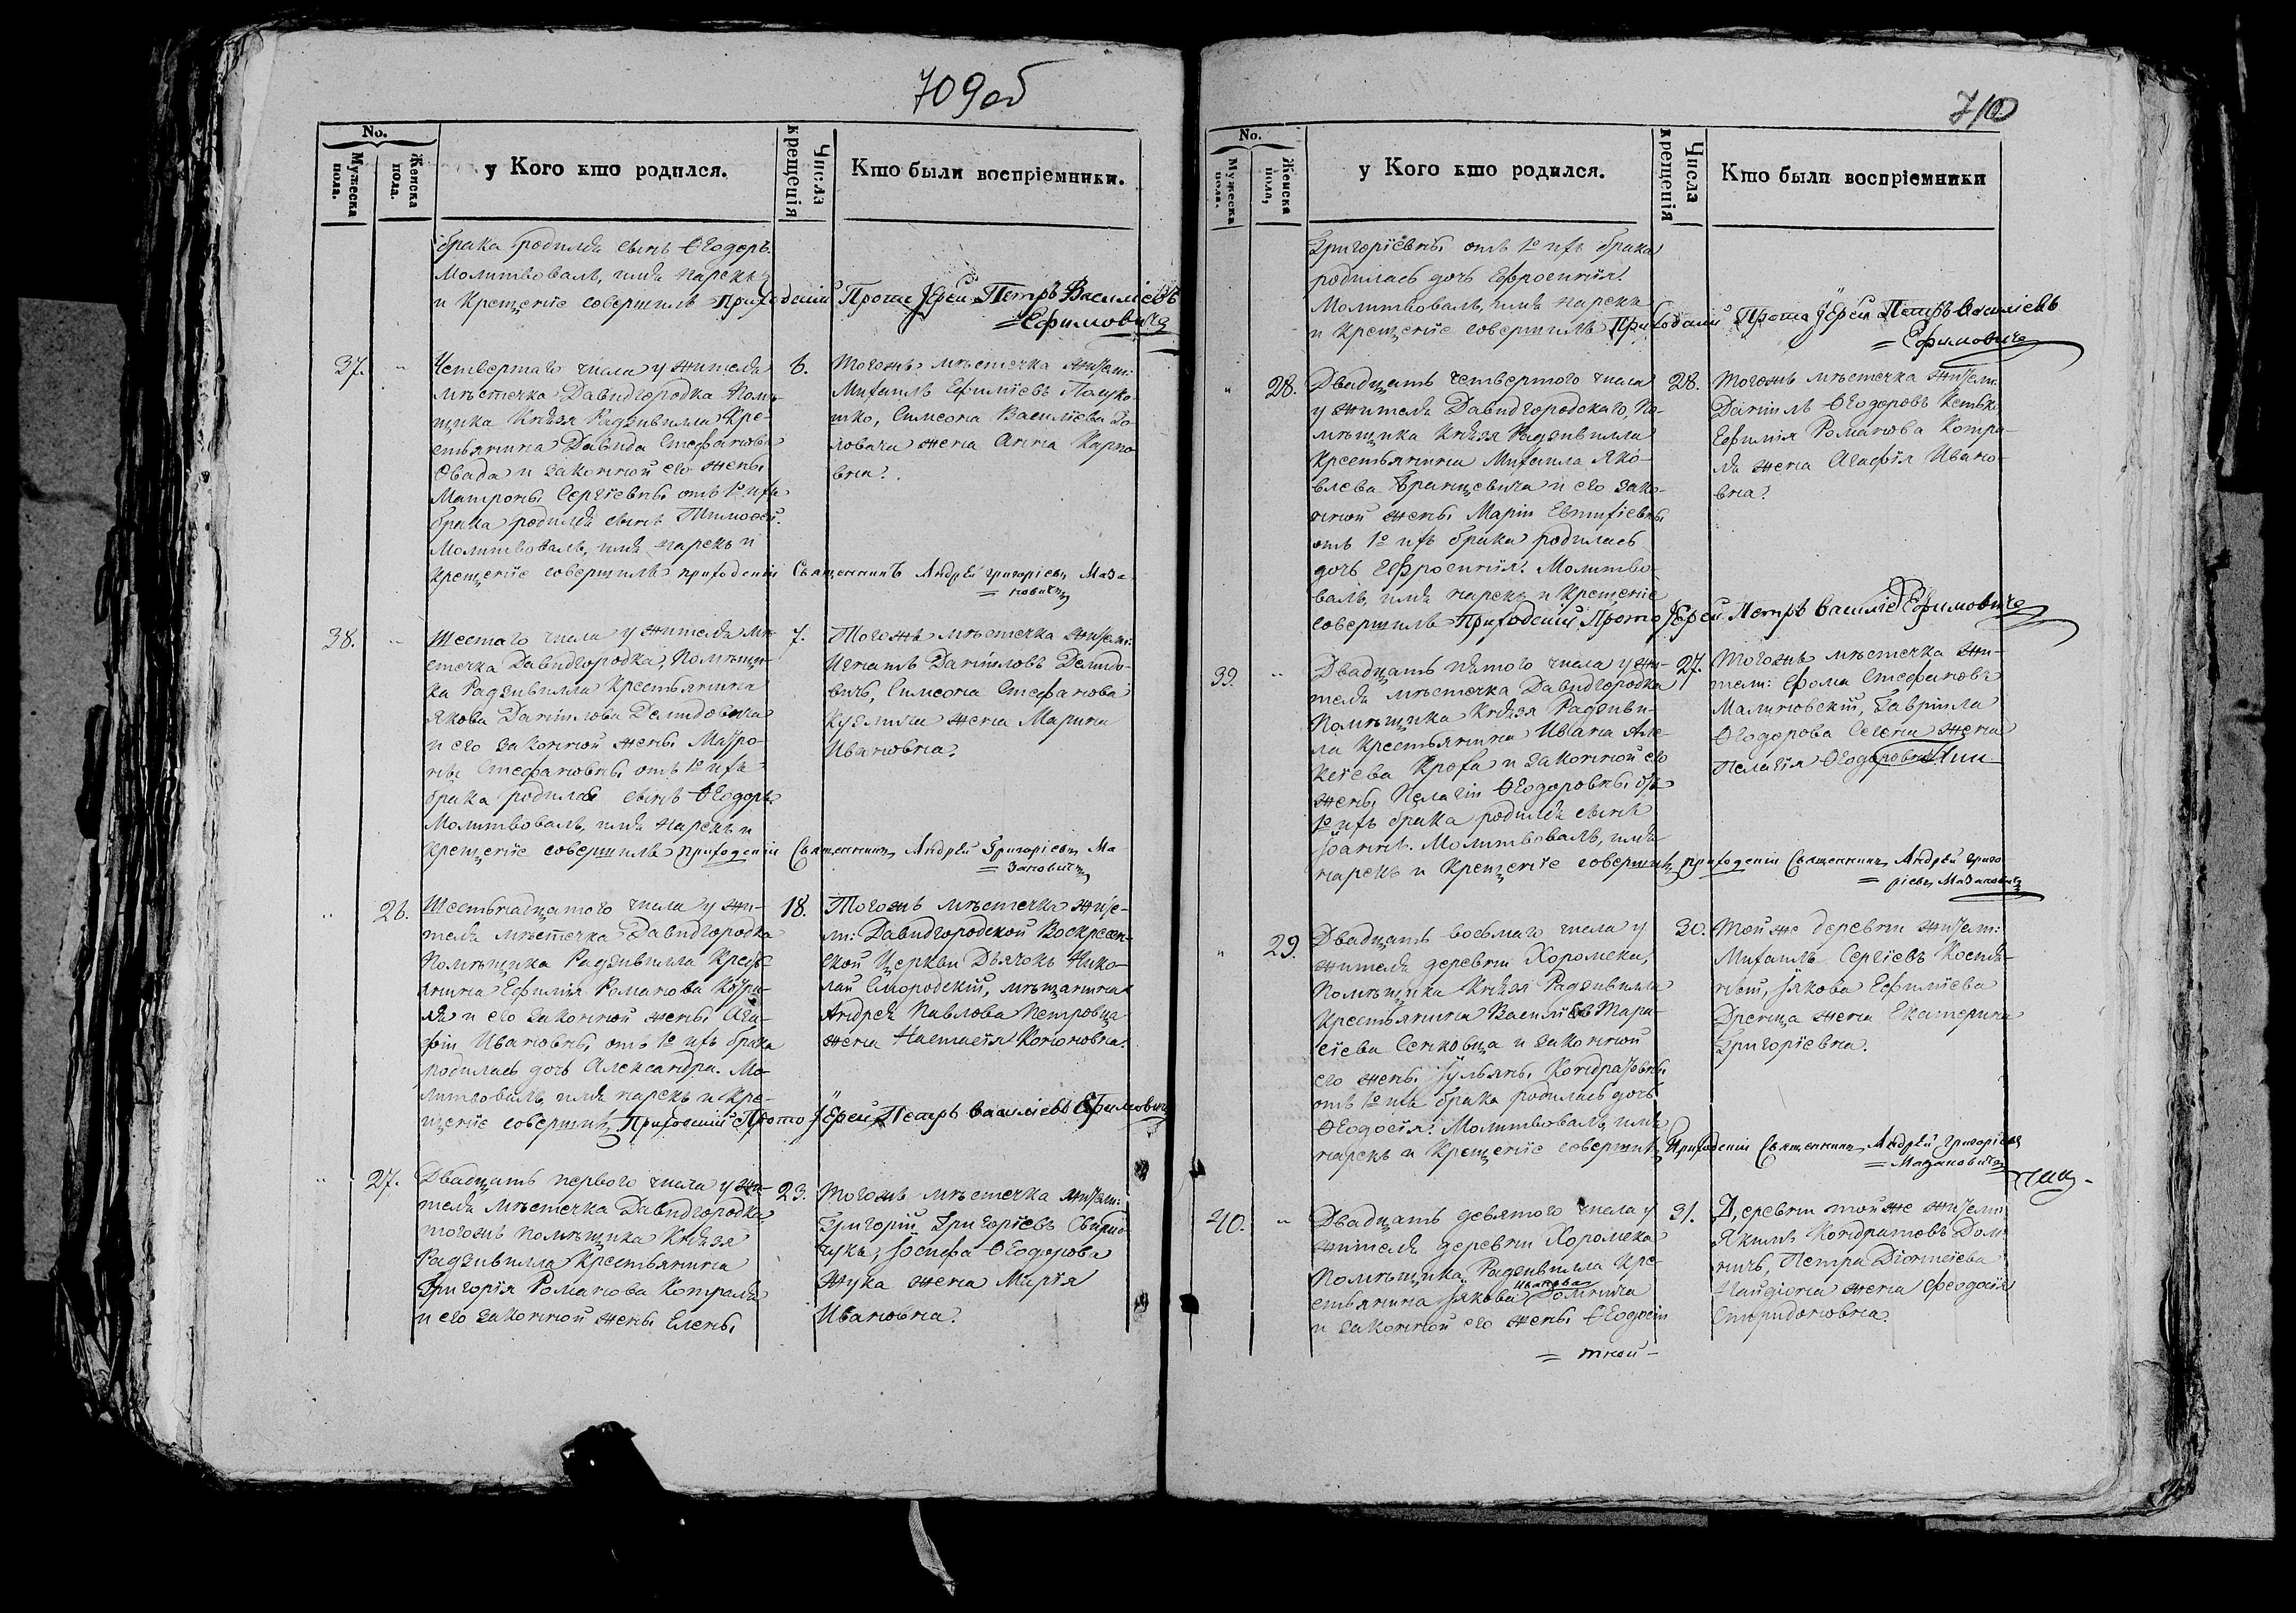 709об
No.
Мужеска пола.
Женска пола.
у Кого кто родился.
Числа крещенія
Кто были воспріемники.
брака родился сынъ Ѳеодоръ.
Молитвовалъ, имя нарекъ
и Крещеніе совершилъ приходскій Протоіерей Петръ Василіевъ
Ефимовичъ
37. "
Четвертаго числа у жителя
мѣстечка Давидгородка Помѣ-
щика Князя Радзивилла Кре-
стьянина Давида Стефанова
Свада и законной его жены
Матроны Сергіевны отъ 1о ихъ
брака родился сынъ Тимоѳей.
Молитвовалъ, имя нарекъ и
Крещеніе совершилъ приходскій Священникъ Андрей Григоріевъ Маза-
новичъ
6.
Тогожъ мѣстечка жители:
Михаилъ Ефимієвъ Пашко-
жена Анна Карпо-
вна.
38. "
Шестаго числа у жителя мѣ-
стечка Давидгородка, Помѣщи-
ка Радзивилла Крестьянина
Якова Даніилова Демидовича
и его законной жены Матро-
ны Стефановны отъ 1о ихъ
брака родился сынъ Ѳеодоръ
Молитвовалъ, имя нарекъ и
Крещеніе совершилъ приходскій Священникъ Андрей Григоріевъ Ма-
зановичъ
7.
Тогожъ мѣстечка жители:
Игнатъ Данііловъ Демидо-
вичъ, Симеона Стефанова
Кузмича жена Марина
Ивановна.
" 26.
Шестьнадцатого числа у жи-
теля мѣстечка Давидгородка
Помѣщика Радзивилла Кресть-
янина Ефимія Романова Котра-
ля и его законной жены Ага-
фіи Ивановны отъ 1о ихъ брака
родилась дочь Александра. Мо-
литвовалъ, имя нарекъ и Кре-
щеніе совершилъ Приходскій Протоіерей Петръ Василіевъ Ефимовичъ
18.
Тогожъ мѣстечка жите-
ли: Давидгородской Воскресен-
ской Церкви Дьячокъ Нико-
лай Смородскій, мѣщанина
Андрея Павлова Петровца
жена Настасія Кононовна.
" 27.
Двадцать перваго числа у жи-
теля мѣстечка Давидгородка
тогожъ помѣщика Князя
Радзивилла Крестьянина
Григорія Романова Котраля
и его законной жены Елены
23.
Тогожъ мѣстечка жители:
Григорій Григоріевъ
Іосифа Ѳеодорова
Жука жена Марія
Ивановна.
710
No.
Мужеска пола.
Женска пола,
у Кого кто родился.
Числа крещенія
Кто были воспріемники
Григоріевны отъ 1о ихъ брака
родилась дочь Ефросинія.
Молитвовалъ, имя нарекъ
и Крещеніе совершилъ Приходскій Протоіерей Петръ Василіевъ
Ефимовичъ
" 28.
Двадцать четвертого числа
у жителя Давидгородского, По-
мѣщика Князя Радзивилла
Крестьянина Михаила Яко-
влева Францевича и его зако-
нной жены Маріи Евтихіевны
отъ 1о ихъ брака родилась
дочь Ефросинія. Молитво-
валъ, имя нарекъ и Крещеніе
совершилъ Приходскій Протоіерей Петръ Василіевъ Ефимовичъ
28.
Тогожъ мѣстечка жители
Даніилъ Ѳеодоровъ
Ефимія Романова Котра-
ля жена Агафія Ивано-
вна.
39. "
Двадцать пятого числа у жи-
теля мѣстечка Давидгородка
Помѣщика Князя Радзиви-
ла Крестьянина Ивана Але-
ксѣева Кроха и законной его
жены Пелагіи Ѳеодоровны отъ
1о ихъ брака родился сынъ
Іоаннъ. Молитвовалъ, имя
нарекъ и Крещеніе совершилъ приходскій Священникъ Андрей Григо-
ріевъ Мазановичъ
27.
Тогожъ мѣстечка жи-
тели: Ѳома Стефановъ
Малиновскій, Гавріила
Ѳеодорова жена
Пелагія Ѳеодоровна
" 29.
Двадцать восьмаго числа у
жителя деревни Хоромска,
Помѣщика Князя Радзивилла
Крестьянина Василія Тара-
сіева Сенковца и законной
его жены Іульяны Кондратовны
отъ 1о ихъ брака родилась дочь
Ѳеодосія. Молитвовалъ, имя
нарекъ и Крещеніе совершилъ Приходскій Священникъ Андрей Григоріевъ
Мазановичъ
30.
Той же деревни жители:
Михаилъ Сергіевъ
Іякова Ефиміева
жена Екатерина
Григоріевна.
40. "
Двадцать девятого числа у
жителя деревни Хоромска
Помѣщика Радзивилла Кре-
стьянина Іякова Иванова Домнича
и законной его жены Ѳеодосіи
31.
Деревни той же жители
Якимъ Кондратовъ Дом-
ничъ, Петра Діонисіева
жена Ѳеодосія
Спиридоновна.